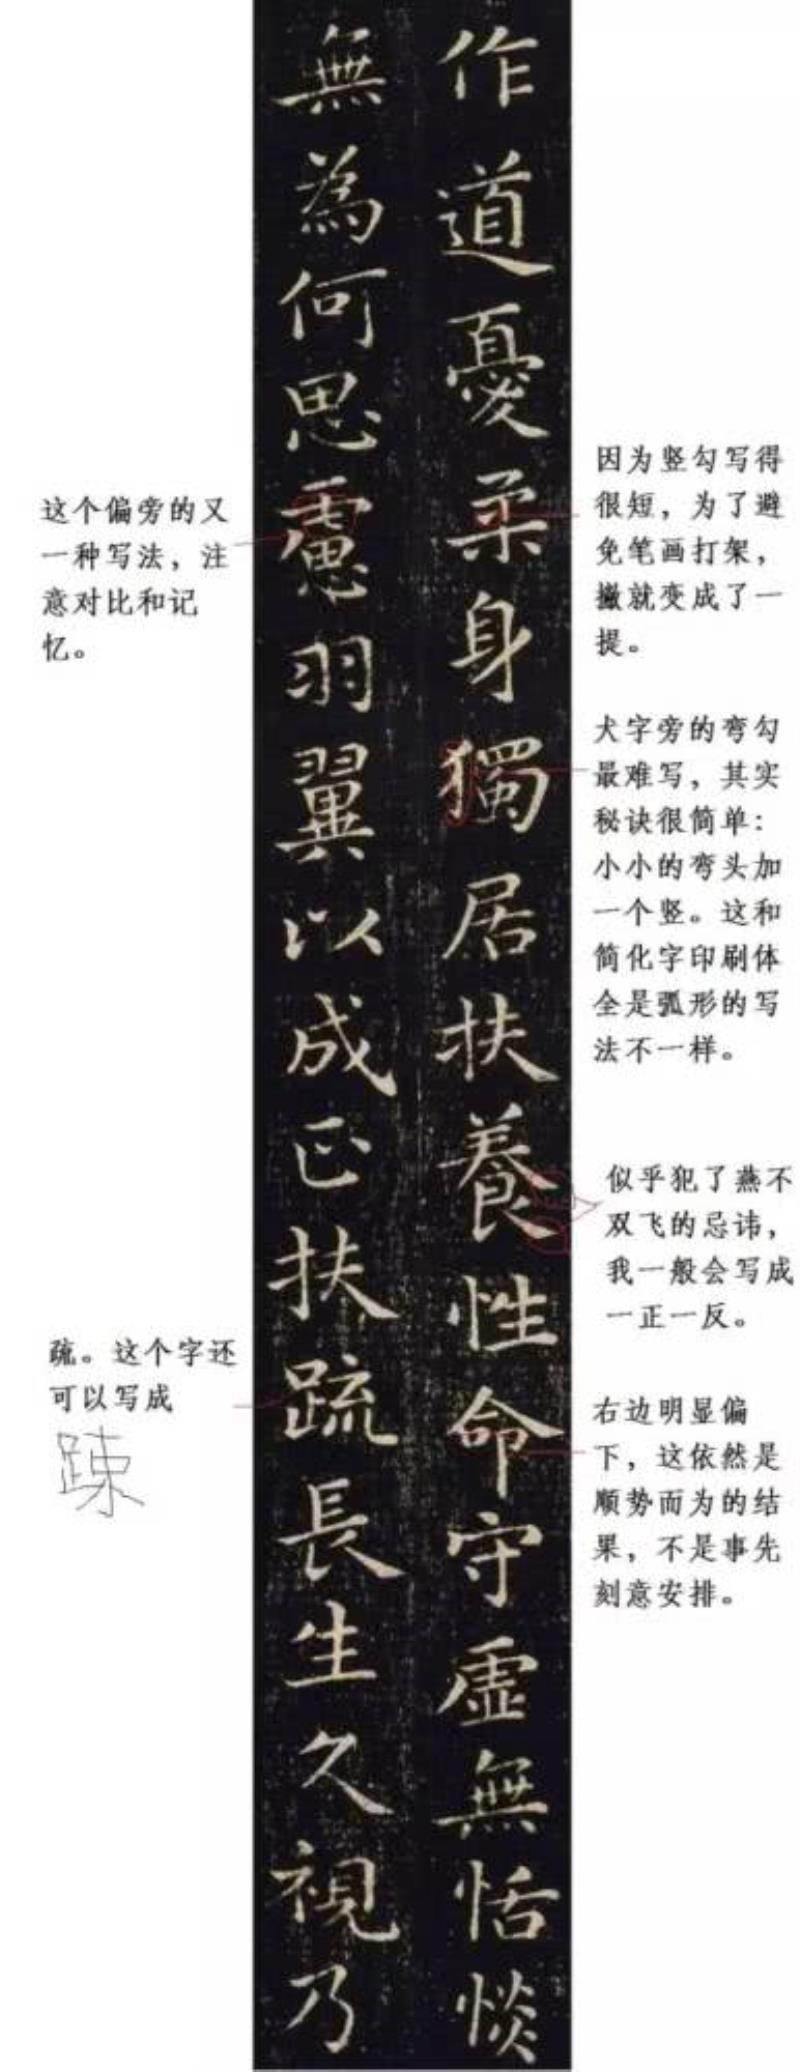 作道憂柔身獨居扶養性命守虛無恬惔
無為何思慮羽翼以成正扶疏長生久視乃
因为竖勾写得
很短，为了避
免笔画打架，
撇就变成了一
提。
犬字旁的弯勾
最难写，其实
秘诀很简单：
小小的弯头加
一个竖。这和
简化字印刷体
全是弧形的写
法不一样。
似乎犯了燕不
双飞的忌讳，
我一般会写成
一正一反。
右边明显偏
下，这依然是
顺势而为的结
果，不是事先
刻意安排。
这个偏旁的又
一种写法，注
意对比和记
忆。
疏。这个字还
可以写成
踈